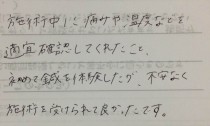 施術中に痛みや温度などを
適宜確認してくれたこと。
初めて鍼を体験したが、不安なく
施術を受けられて良かったです。